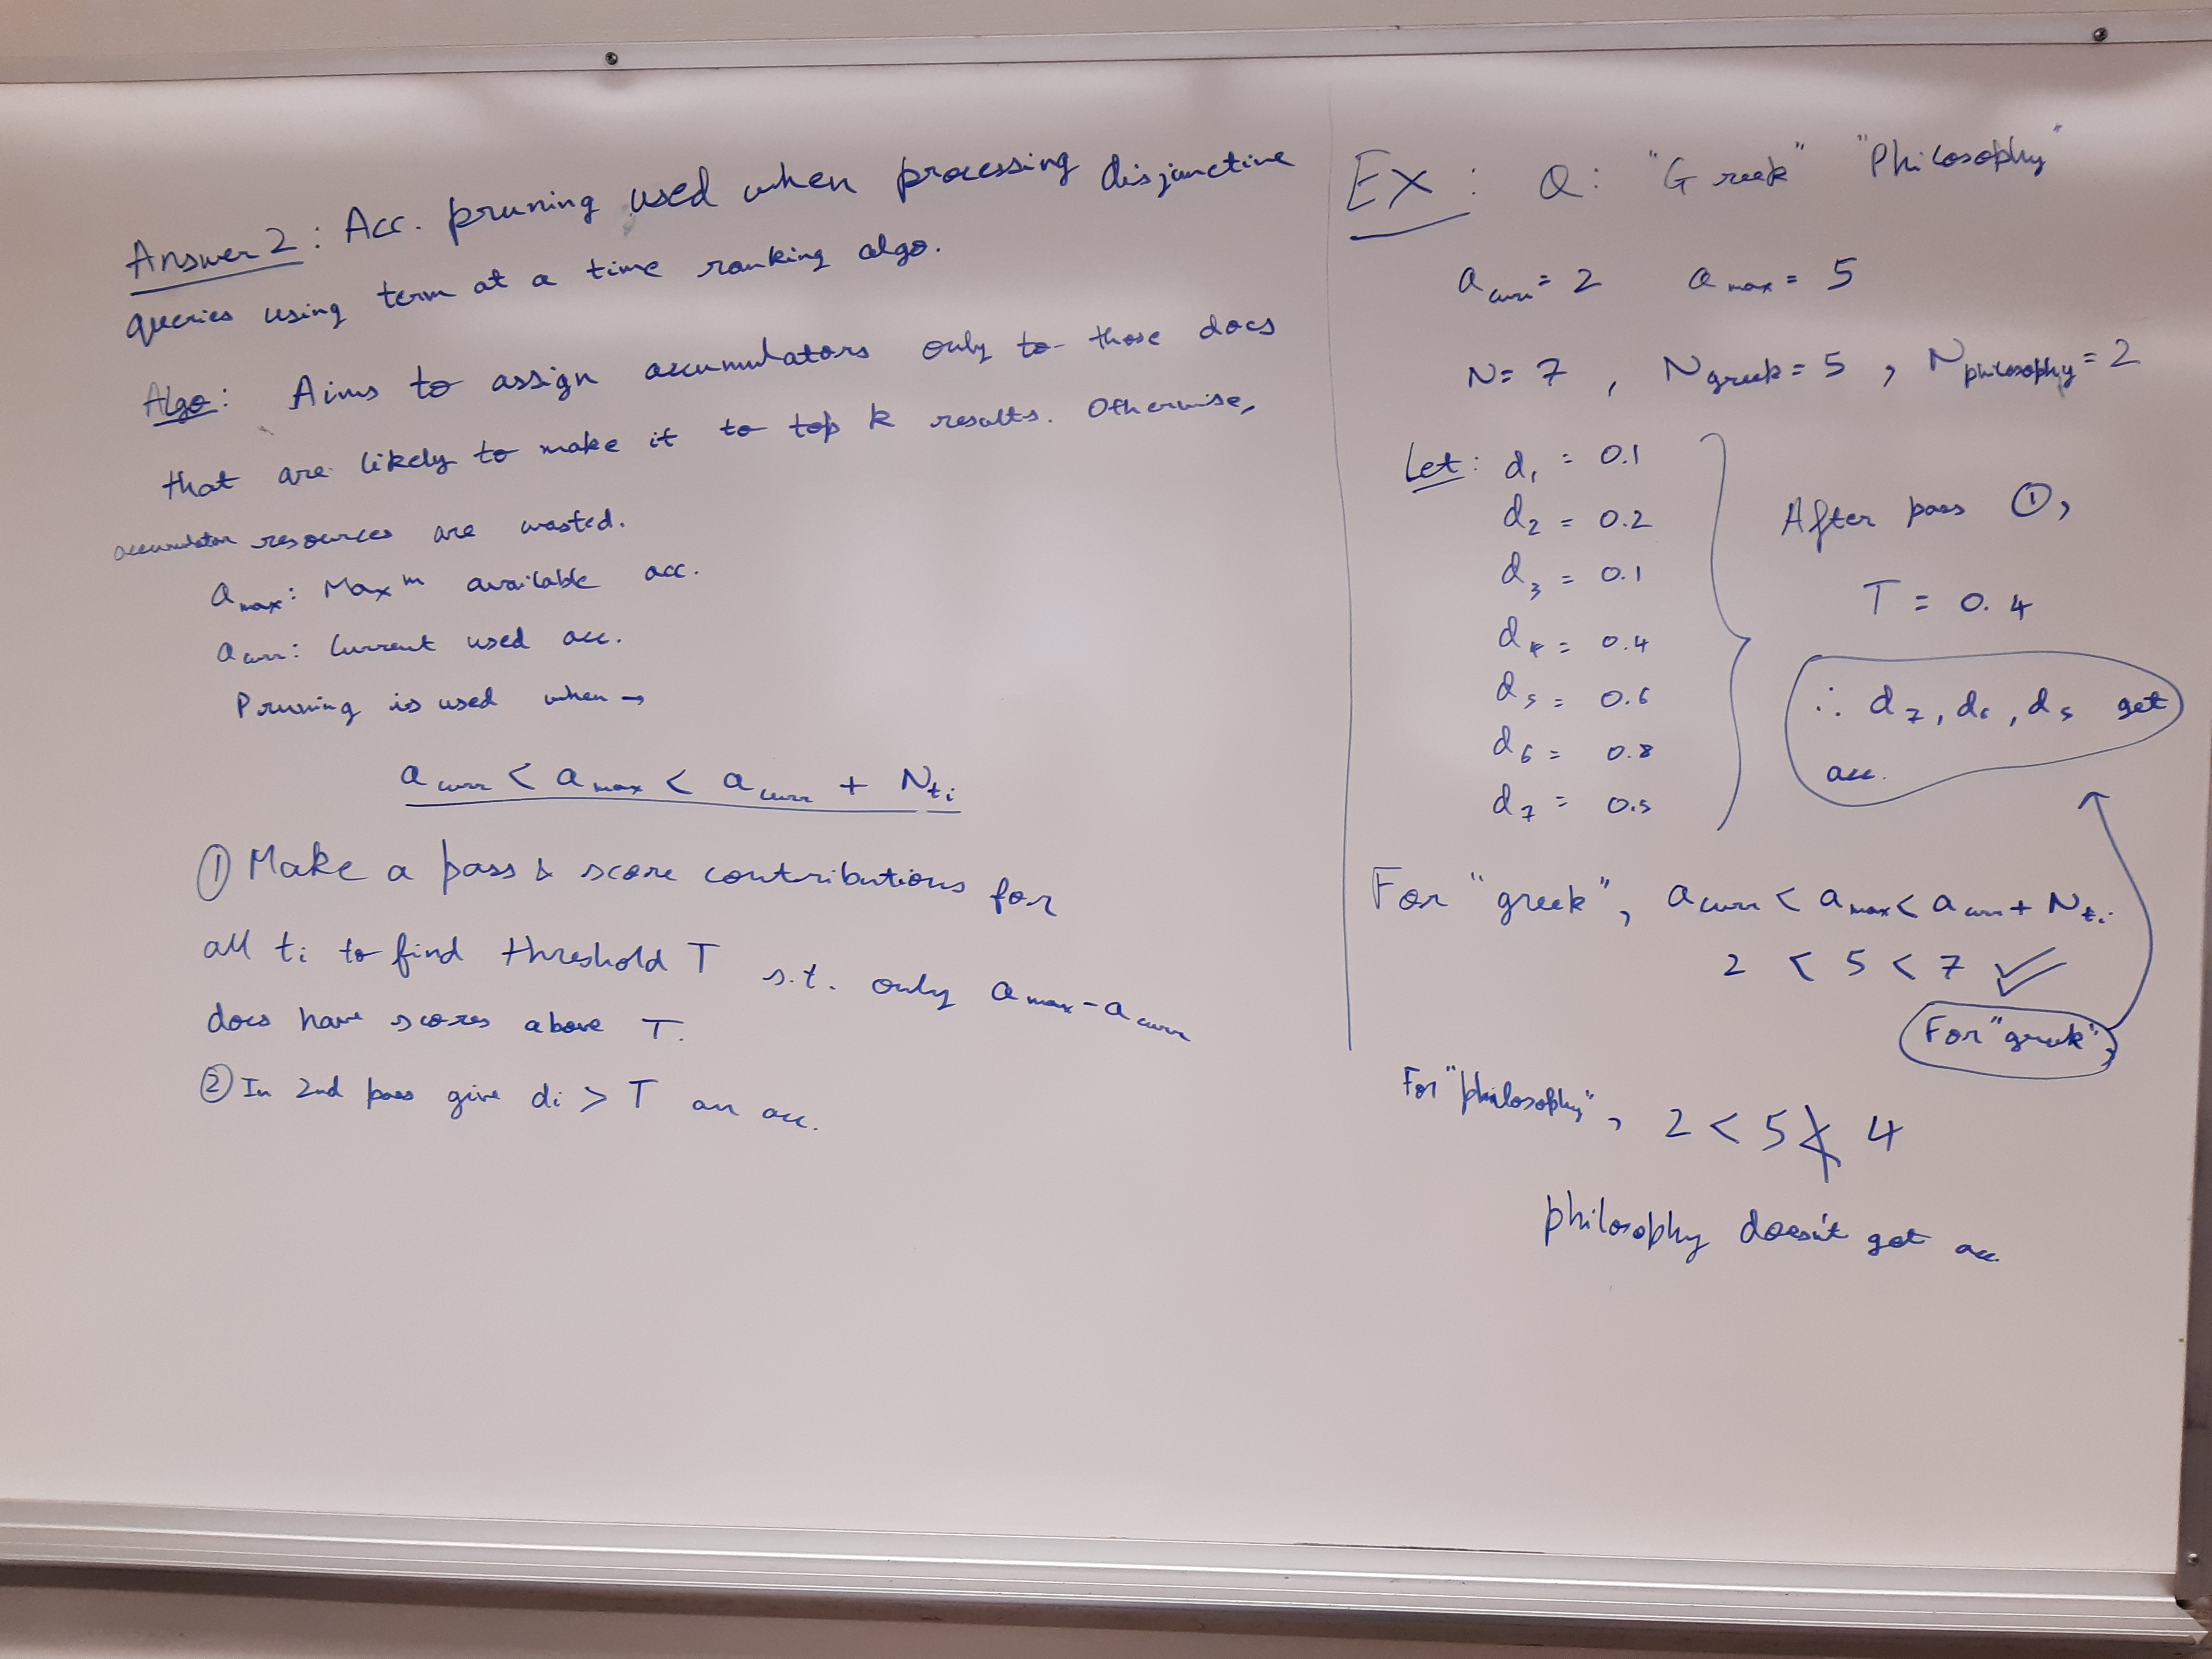 Answer 2: Acc. pruning used when processing disjunctive
queries using term at a time ranking algo.
Algo: Aims to assign accumulators only to those docs
that are likely to make it to top k results. Otherwise,
accumulator resources are wasted.
a max: Maxᵐ available acc.
a curr: Current used acc.
Pruning is used when →
a curr < a max < a curr + N ti
① Make a pass & score contributions for
all ti to find threshold T s.t. only a max - a curr
docs have scores above T.
② In 2nd pass give di > T an acc.
EX: Q: "Greek" "Philosophy"
a curr = 2 a max = 5
N = 7, N greek = 5, N philosophy = 2
Let: d₁ = 0.1
d₂ = 0.2
d₃ = 0.1
d₄ = 0.4
d₅ = 0.6
d₆ = 0.8
d₇ = 0.5
After pass ①,
T = 0.4
∴ d₇, d₆, d₅ get
acc.
For "greek", a curr < a max < a curr + N ti
2 < 5 < 7 ✓
For "greek",
For "philosophy", 2 < 5 ≮ 4
philosophy doesn't get acc.